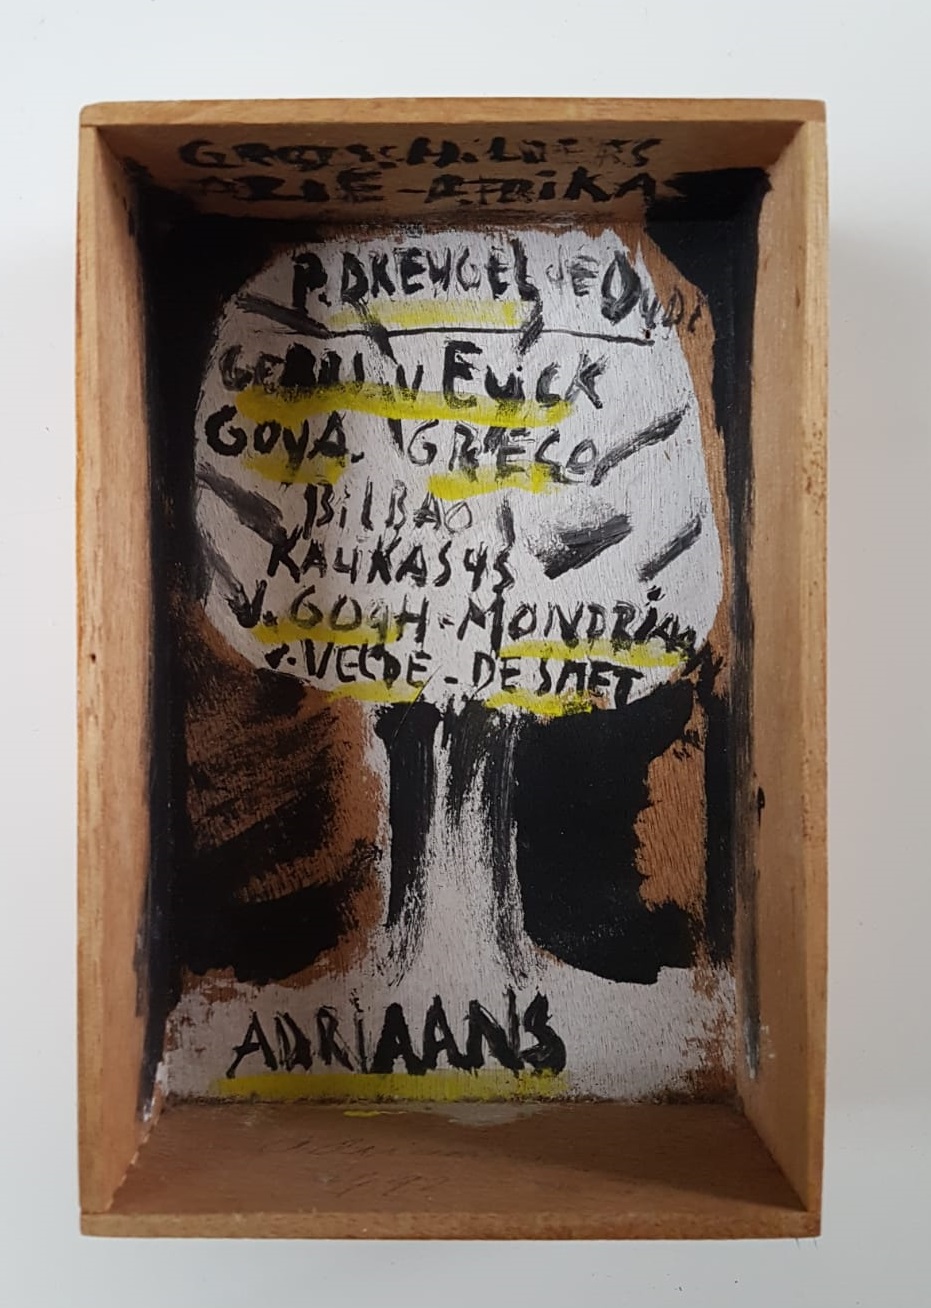 GROTSCHILDERS
AZIË - AFRIKA
P. BREUGEL DE OUDE
GEBR. V EUICK
GOYA. GRECO
BILBAO
KAUKASUS
V. GOGH - MONDRIAN
V. VELDE - DE SMET
ADRIAANS